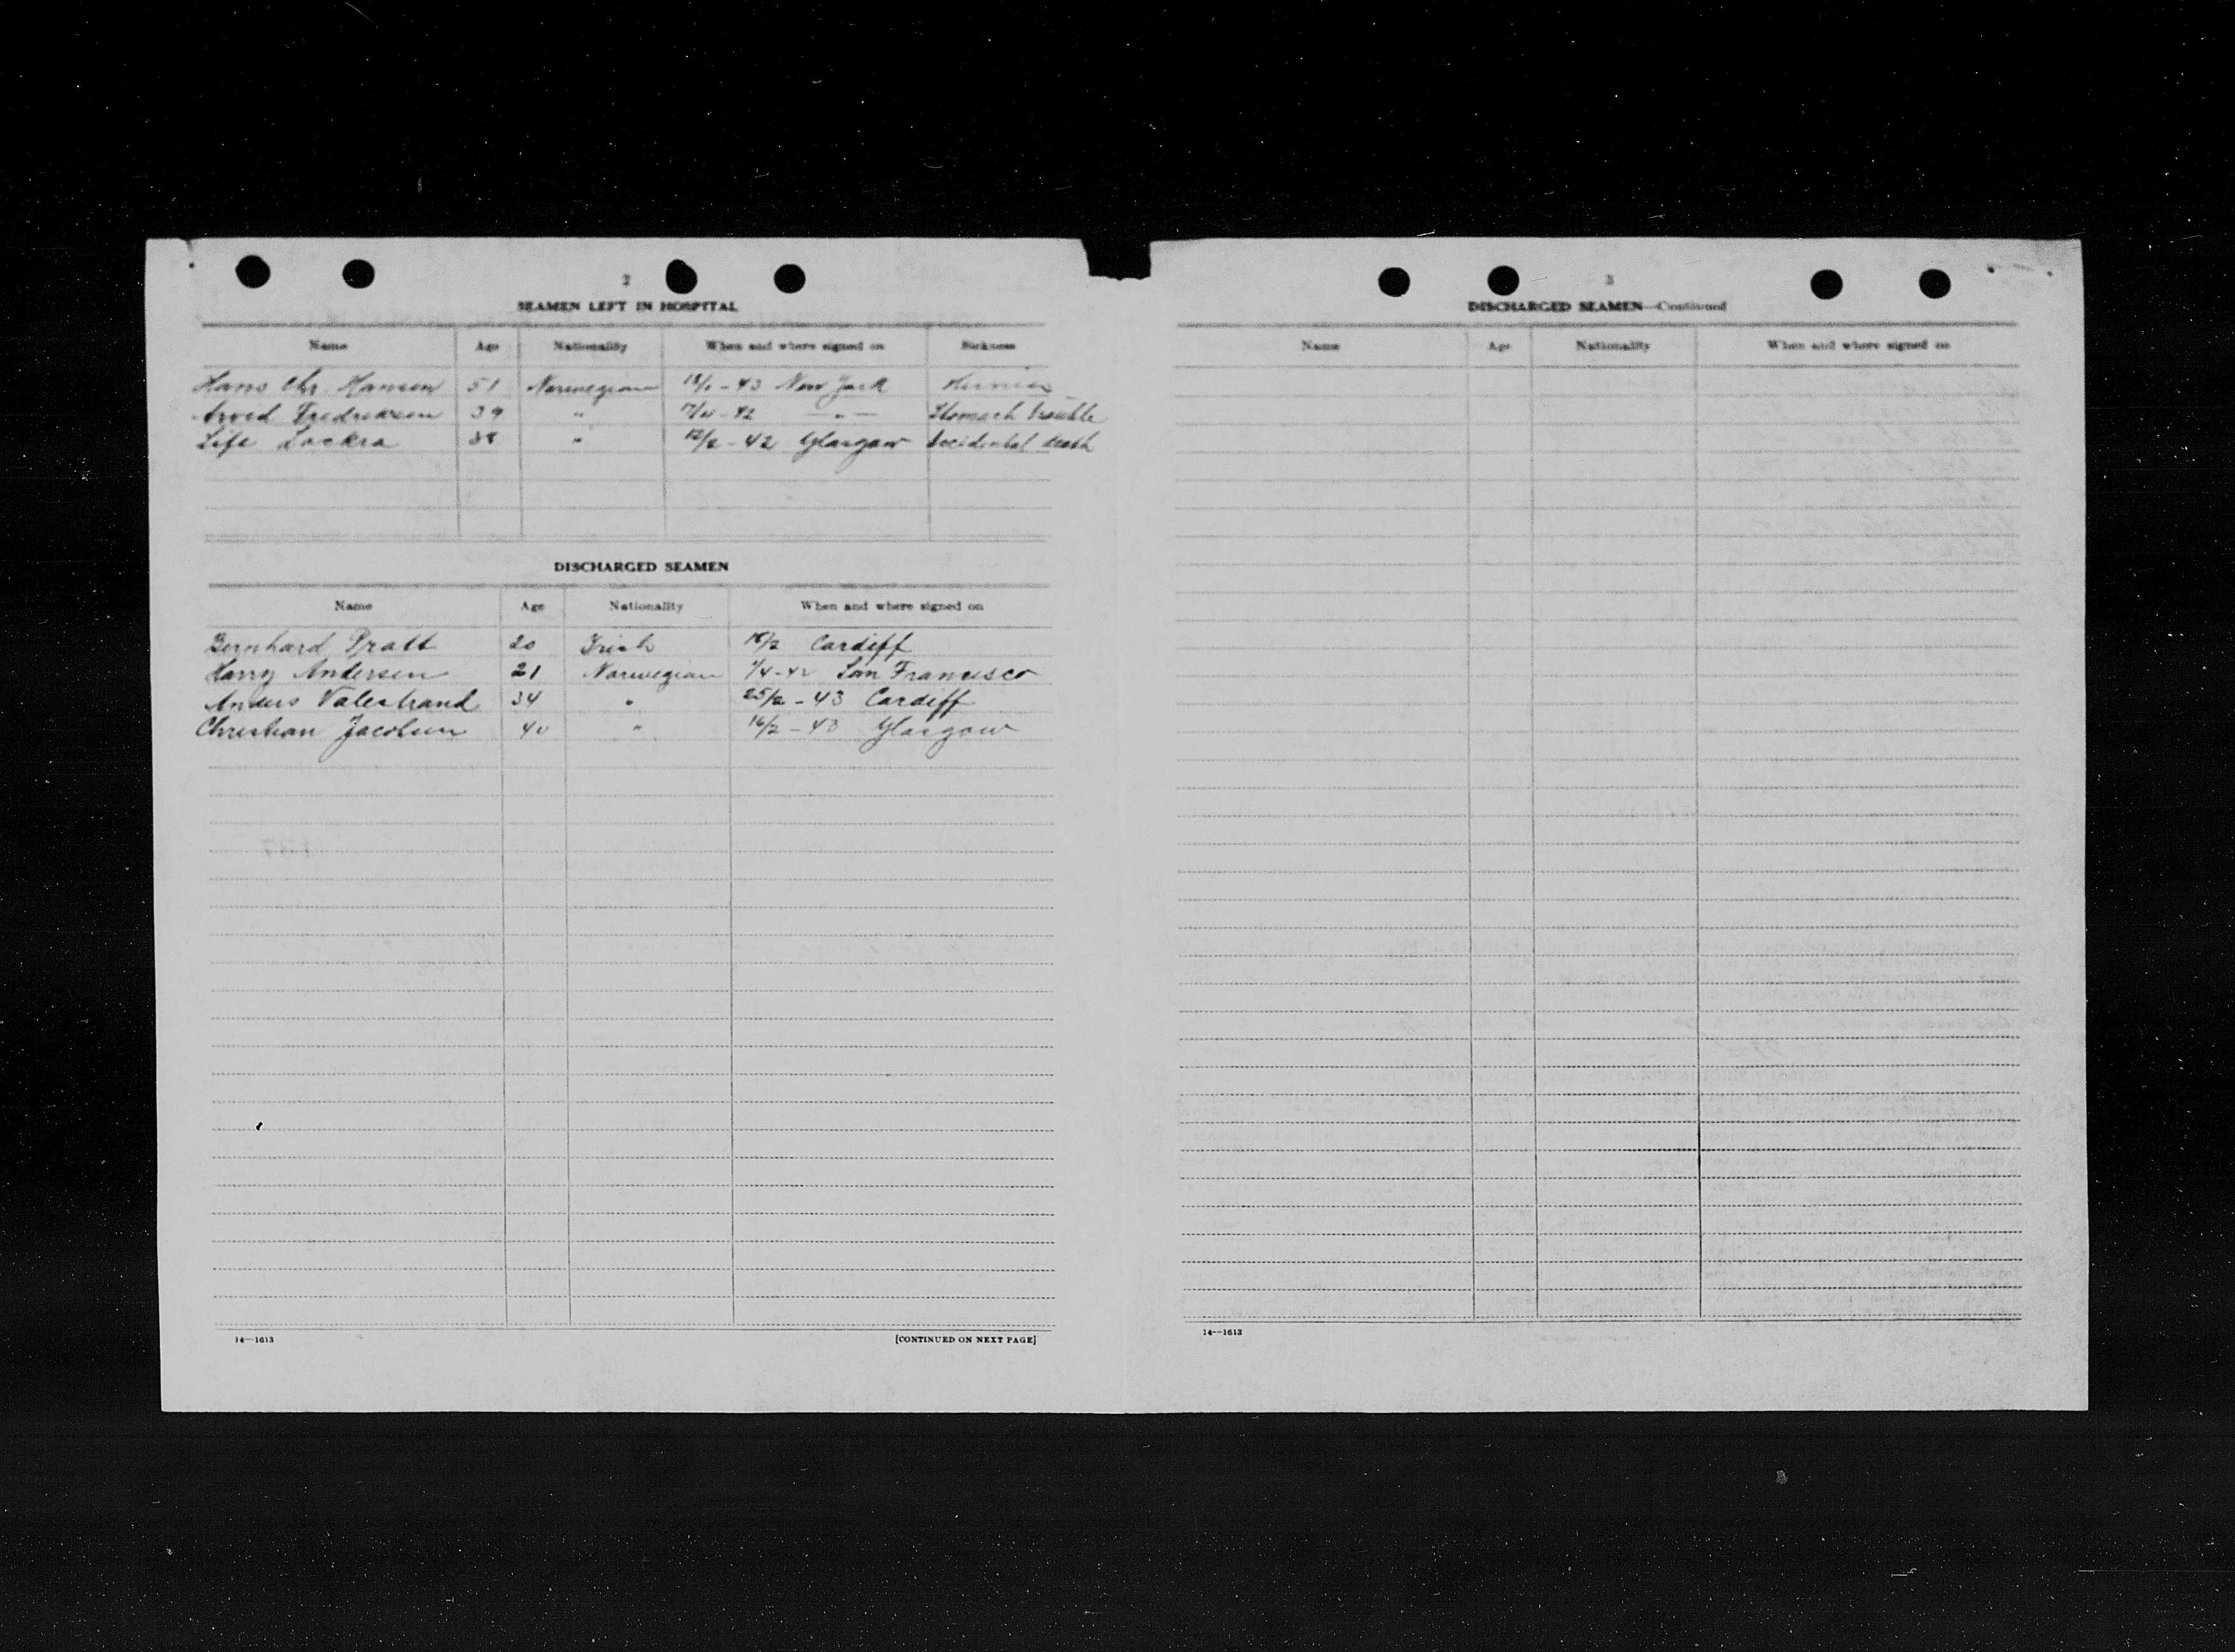 2
SEAMEN LEFT IN HOSPITAL
Name Age Nationality When and where signed on Sickness
Hans Chr. Hansen 51 Norwegian 18/1-43 New York Hernia
Arved Fredriksen 39 " 17/11-42 —"— Stomach trouble
Life Lockra 38 " 12/2-42 Glasgow Accidental death
DISCHARGED SEAMEN
Name Age Nationality When and where signed on
Bernhard Pratt 20 Irish 18/2 Cardiff
Harry Andersen 21 Norwegian 1/4-42 San Francisco
Anders Valestrand 34 " 25/2-43 Cardiff
Christian Jacobsen 40 " 16/2-43 Glasgow
14—1613 [CONTINUED ON NEXT PAGE]
3
DISCHARGED SEAMEN—Continued
Name Age Nationality When and where signed on
14—1613